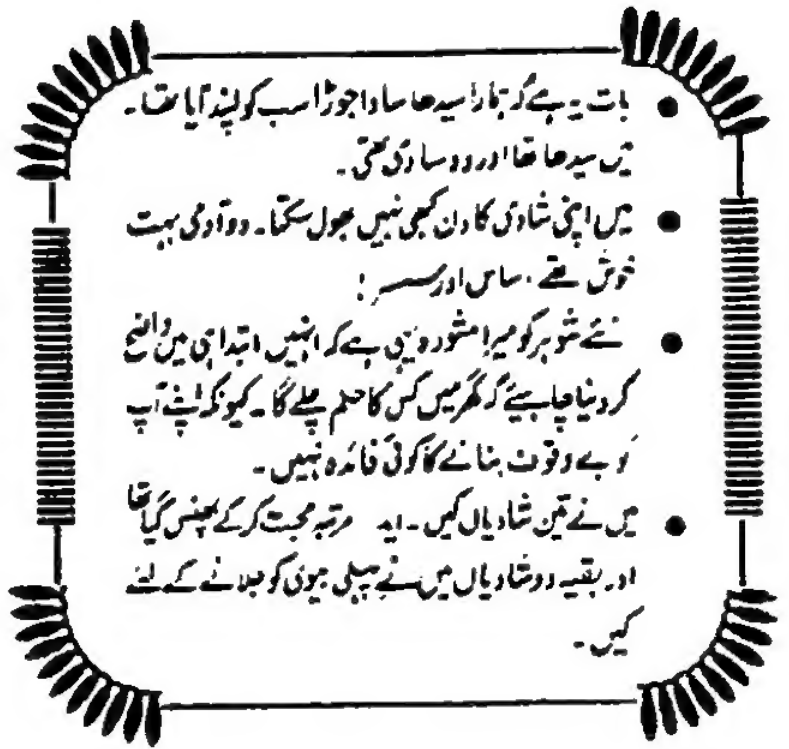 ● بات یہ ہے کہ ہمارا سیدھا سادا جوڑا سب کو پسند آیا تھا۔
میں سیدھا تھا اور وہ سادی تھی۔
● میں اپنی شادی کا دن کبھی نہیں بھول سکتا۔ دو آدمی بہت
خوش تھے، ساس اور سسر!
● نئے شوہر کو میرا مشورہ یہی ہے کہ انہیں ابتدا ہی میں واضح
کر دینا چاہیئے کہ گھر میں کس کا حکم چلے گا۔ کیونکہ اپنے آپ
کو بے وقوف بنانے کا کوئی فائدہ نہیں۔
● میں نے تین شادیاں کیں۔ مرتبہ محبت کرکے پھنس گیا تھا
اور بقیہ دو شادیاں میں نے پہلی بیوی کو جلانے کے لئے
کیں۔